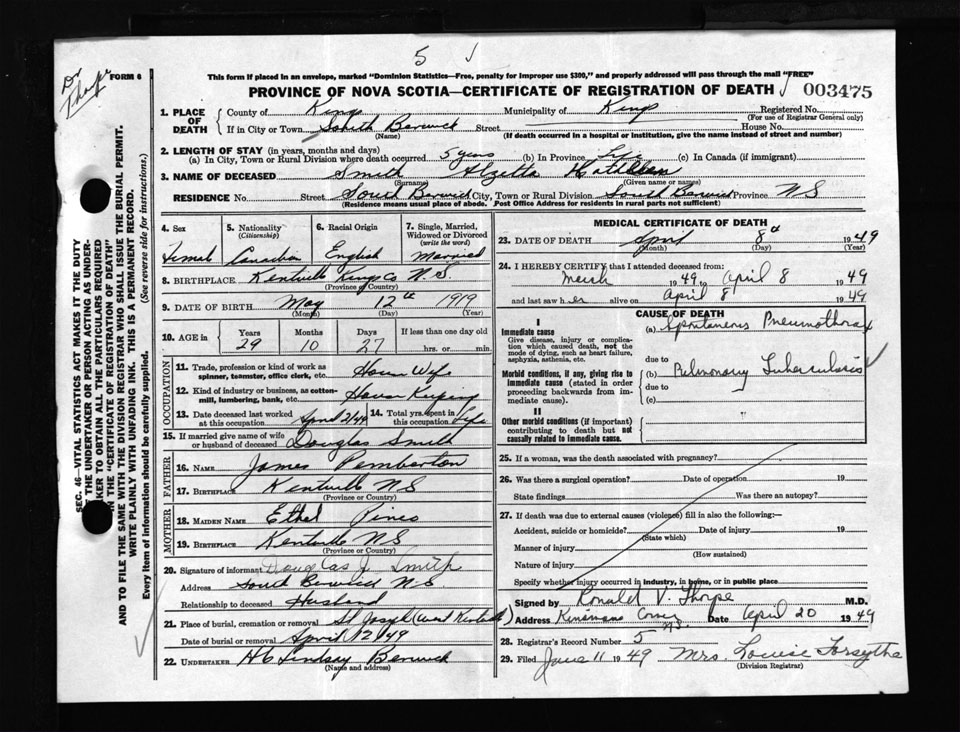 5 √
Dr Thorpe
FORM 6
This form if placed in an envelope, marked "Dominion Statistics—Free, penalty for improper use $300," and properly addressed will pass through the mail "FREE"
PROVINCE OF NOVA SCOTIA—CERTIFICATE OF REGISTRATION OF DEATH 003475
1. PLACE OF DEATH County of Kings Municipality of Kings Registered No.
(For use of Registrar General only)
If in City or Town South Berwick Street House No.
(Name) (If death occurred in a hospital or institution, give the name instead of street and number)
2. LENGTH OF STAY (in years, months and days)
(a) In City, Town or Rural Division where death occurred 5 years (b) In Province Life (c) In Canada (if immigrant)
3. NAME OF DECEASED Smith Kathleen
(Surname) (Given name or names)
RESIDENCE No. Street South Berwick City, Town or Rural Division South Berwick Province N S
(Residence means usual place of abode. Post Office Address for residents in rural parts not sufficient)
SEC. 46—VITAL STATISTICS ACT MAKES IT THE DUTY
OF THE UNDERTAKER OR PERSON ACTING AS UNDER-
TAKER TO OBTAIN ALL THE PARTICULARS REQUIRED
IN THE "CERTIFICATE OF REGISTRATION OF DEATH"
AND TO FILE THE SAME WITH THE DIVISION REGISTRAR WHO SHALL ISSUE THE BURIAL PERMIT.
WRITE PLAINLY WITH UNFADING INK. THIS IS A PERMANENT RECORD.
Every item of information should be carefully supplied. (See reverse side for instructions.)
4. Sex 5. Nationality (Citizenship) 6. Racial Origin 7. Single, Married, Widowed or Divorced (write the word)
Femal Canadian English Married
8. BIRTHPLACE Kentville Kings Co N.S.
(Province or Country)
9. DATE OF BIRTH May 12th 1919
(Month) (Day) (Year)
10. AGE in Years Months Days If less than one day old
29 10 27 hrs. or min.
OCCUPATION
11. Trade, profession or kind of work as spinner, teamster, office clerk, etc. House Wife
12. Kind of industry or business, as cotton-mill, lumbering, bank, etc. House Keeping
13. Date deceased last worked at this occupation April 2/49 14. Total yrs. spent in this occupation Life
15. If married give name of wife or husband of deceased Douglas Smith
FATHER
16. NAME James Pemberton
17. BIRTHPLACE Kentville N S
(Province or Country)
MOTHER
18. MAIDEN NAME Ethel Pineo
19. BIRTHPLACE Kentville N S
(Province or Country)
20. Signature of informant Douglas J. Smith
Address South Berwick N.S.
Relationship to deceased Husband
21. Place of burial, cremation or removal St Joseph
Date of burial or removal April 12/49
22. UNDERTAKER H C Lindsay Berwick
(Name and address)
MEDICAL CERTIFICATE OF DEATH
23. DATE OF DEATH April 8th 1949
(Month) (Day) (Year)
24. I HEREBY CERTIFY that I attended deceased from:
March 1949 to April 8 1949
and last saw her alive on April 8 1949
CAUSE OF DEATH
I
Immediate cause (a) Spontaneous Pneumothorax
Give disease, injury or complication which caused death, not the mode of dying, such as heart failure, asphyxia, asthenia, etc.
due to
Morbid conditions, if any, giving rise to immediate cause (stated in order proceeding backwards from immediate cause) (b) Pulmonary Tuberculosis √
due to
(c)
II
Other morbid conditions (if important) contributing to death but not causally related to immediate cause.
25. If a woman, was the death associated with pregnancy?
26. Was there a surgical operation? Date of operation 19
State findings Was there an autopsy?
27. If death was due to external causes (violence) fill in also the following:—
Accident, suicide or homicide? Date of injury 19
(State which)
Manner of injury
(How sustained)
Nature of injury
Specify whether injury occurred in industry, in home, or in public place
Signed by Ronald V. Thorpe M.D.
Address Kinsmans Corner NS. Date April 20 1949
28. Registrar's Record Number 5
29. Filed June 11 1949 Mrs. Louise Forsythe
(Division Registrar)